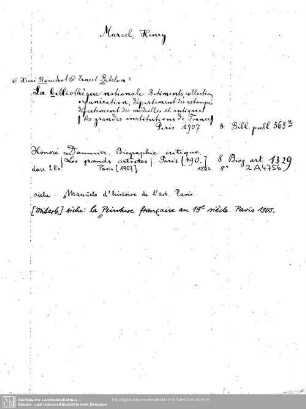 Marcel, Henry
& Henri Bouchot & Ernest Babelon:
La Bibliothèque nationale. Bâtiments, collection,
organisation, département des estampes,
département des médailles et antiques
(Les grands institutions de France)
Paris 1907 8 Bibl. publ 562
Honoré Daumier. Biographie critique
(Les grands artistes) Paris [190.] 8 Biog. art. 1329
dass. Paris [1907] 8° 2 A 4756
siehe: Manuels d'histoire de l'art. Paris
siehe: la Peinture française au 19e siècle. Paris 1905.